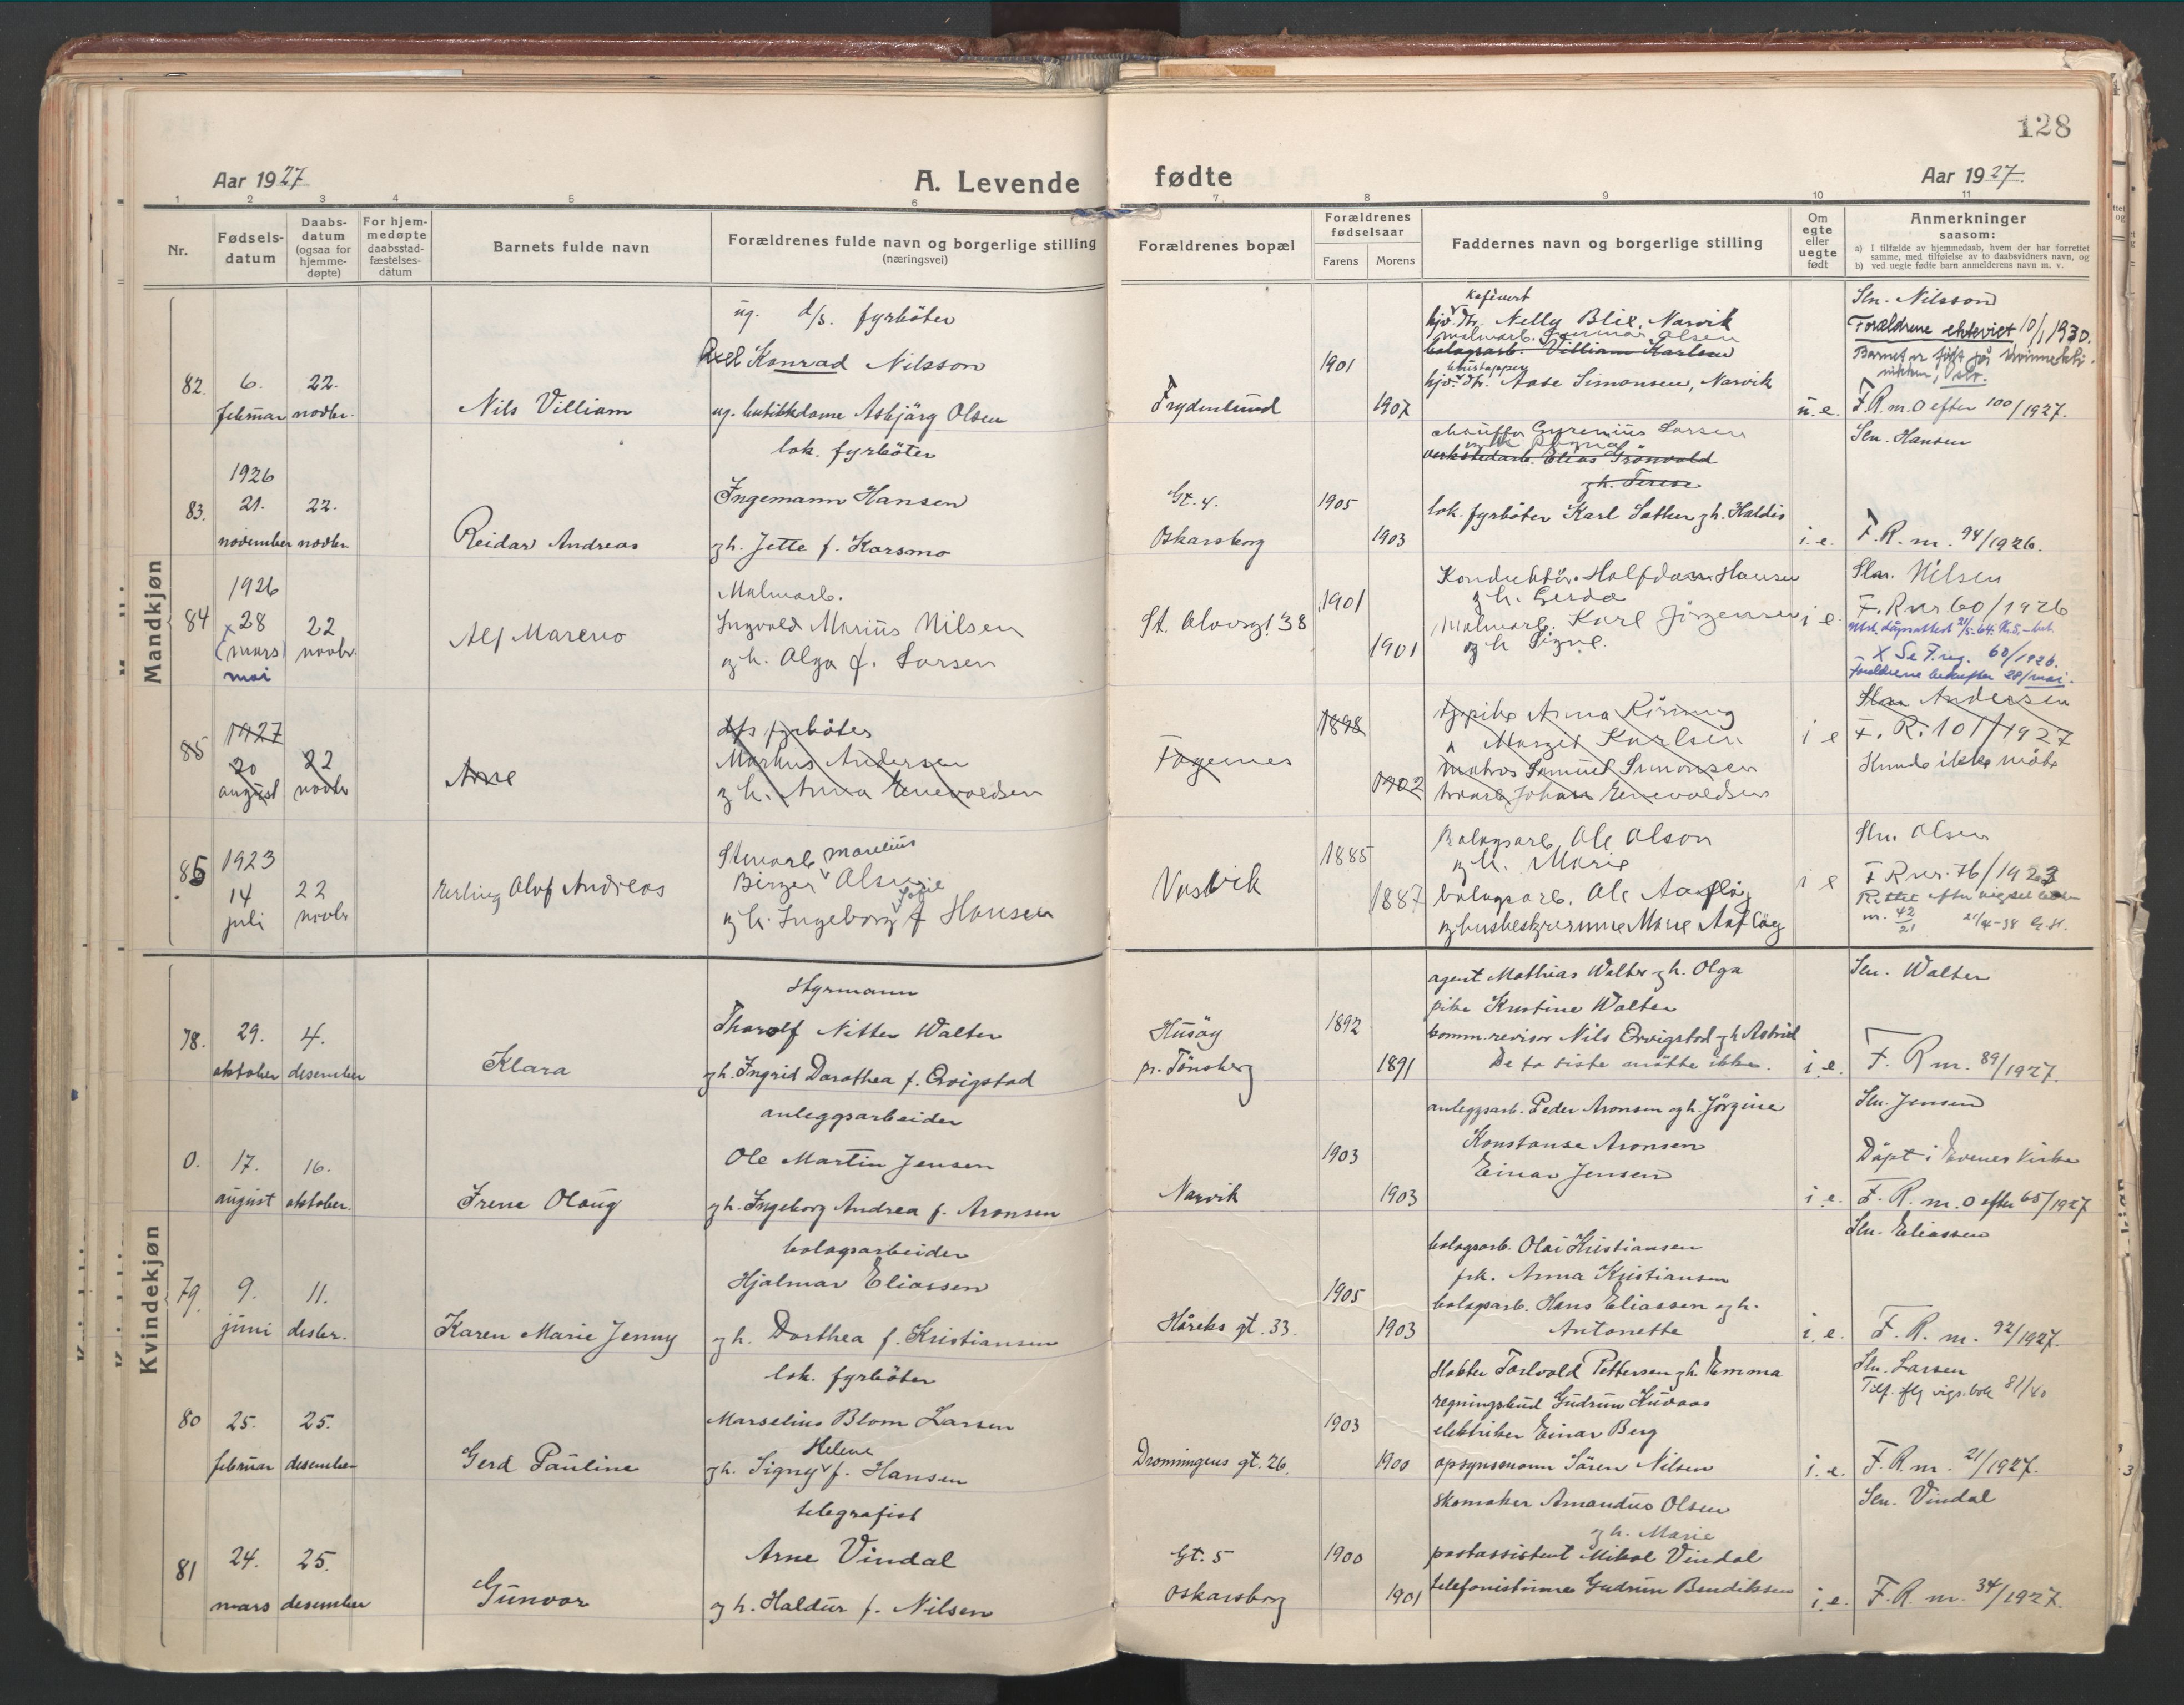 128
Aar 1927
A. Levende fødte
Aar 1927.
1 2 3 4 5 6 7 8 9 10 11
Nr.
Fødsels-
datum
Daabs-
datum
(ogsaa for
hjemme-
døpte)
For hjem-
medøpte
daabsstad-
fæstelses-
datum
Barnets fulde navn
Forældrenes fulde navn og borgerlige stilling
(næringsvei)
Forældrenes bopæl
Forældrenes
fødselsaar
Farens Morens
Faddernes navn og borgerlige stilling
Om
egte
eller
uegte
født
Anmerkninger
saasom:
a) I tilfælde av hjemmedaab, hvem der har forrettet
samme, med tilføielse av to daabsvidners navn, og
b) ved uegte fødte barn anmelderens navn m. v.
Mandkjøn
82.
6.
februar
22.
novbr.
Nils Villiam
ug. d/s. fyrböter
Axel Konrad Nilsson
ug. butikkdame Asbjörg Olsen
Frydenlund
1901
1907
Kafévert
Nelly Blix, Narvik
malmarb. Gunnar Olsen
bolagsarb. Villiam Karlsen
Aase Simonsen, Narvik
u. e.
Sln. Nilsson
Forældrene ekteviet 10/1 1930.
Barnet er født på Kvinneklinikken, Oslo.
F.R. nr. 0 efter 100/1927.
83.
1926
21.
november
22.
novbr.
Reidar Andreas
lok. fyrböter
Ingemann Hansen
g h. Jette f. Karsmo
Gt. 4.
Oskarsborg
1905
1903
chauffør Gyrenius Larsen
og h. Ragna
verkstedarb. Elias Grönvold
g h. Terese
lok. fyrböter Karl Sather g h. Haldis
i. e.
Sln. Hansen
F. R. nr. 94/1926.
84
1926
x 28
(mars)
mai
22
novbr.
Alf Mareno
Malmarb.
Ingvald Marius Nilsen
og h. Olga f. Larsen
St. Olavsgt. 38
1901
1901
Konduktör Halfdan Hansen
g h. Gerda
Malmarb. Karl Jörgensen
og h Signe.
i e
Sln. Nilsen
F. R nr. 60/1926
X Se F. reg. 60/1926.
foreldrene bekrefter 28/mai.
85
1927
20
august
22
novbr
Arne
d/s fyrböter
Markus Andersen
g h. Anna Enevoldsen
Fagernes
1898
1902
tj.pike Anna Kiring
Margit Karlsen
Matros Samuel Simonsen
Johan Enevoldsen
i e
Sln Andersen
F. R. 101/1927
Kunde ikke møte
85
1923
14
juli
22
novbr
Erling Olaf Andreas
Stenarb Marelius
Birger Olsen
og h. Ingeborg Sofie f Hansen
Vasvik
1885
1887
Bolagsarb. Ole Olson
og h. Marie
bolagsarb. Ole Aafløy
og husbestyrerinne Marie Aafløy
i e
Sln. Olsen
F R nr. 76/1923
Rettet efter vigselbok
nr. 42/21 21/4-38
Kvindekjøn
78.
29.
oktober
4.
desember
Klara
Styrmann
Thorolf Nitter Walter
g h. Ingrid Dorothea f. Qvigstad
Husöy
pr. Tönsberg
1892
1891
agent Mathias Walter g h. Olga
pike Kristine Walter
komm.revisor Nils Qvigstad g h Astrid
De to siste mötte ikke.
i. e.
Sln. Walter
F. R nr. 89/1927.
0.
17.
august
16.
oktober.
Irene Olaug
anleggsarbeider
Ole Martin Jensen
g h. Ingeborg Andrea f. Aronsen
Narvik
1903
1903
anleggsarb. Peder Aronsen og h. Jörgine
Konstanse Aronsen
Einar Jensen
i. e.
Sln. Jensen
Döpt i Evenes kirke
F. R. nr. 0 efter 65/1927
79.
9.
juni
11.
desbr.
Karen Marie Jenny
bolagsarbeider
Hjalmar Eliassen
g h. Dorthea f. Kristiansen
Håreks gt. 33.
1905
1903
bolagsarb. Olai Kristiansen
frk. Anna Kristiansen
bolagsarb. Hans Eliassen og h.
Antonette
i. e.
Sln. Eliassen
F. R. nr. 92/1927.
80
25.
februar
25.
desember
Gerd Pauline
lok. fyrböter
Marselius Blom Larsen
g h. Signy Helene f. Hansen
Dronningens gt. 26.
1903
1900
Torlvald Pettersen g h. Emma
regningsbud Gudrun Kuvaas
elektriker Einar Berg
opsynsmann Sören Nilsen
i. e.
Sln. Larsen
Tilf. iflg vigs.bok 81/40
F. R. nr. 21/1927.
81
24.
mars
25.
desember
Gunvor
telegrafist
Arne Vindal
og h. Haldur f. Nilsen
Gt. 5
Oskarsborg
1900
1901
skomaker Amandus Olsen
og h. Marie
postassistent Mikal Vindal
telefonistinne Gudrun Bendiksen
i. e.
Sln. Vindal
F. R. nr. 34/1927.